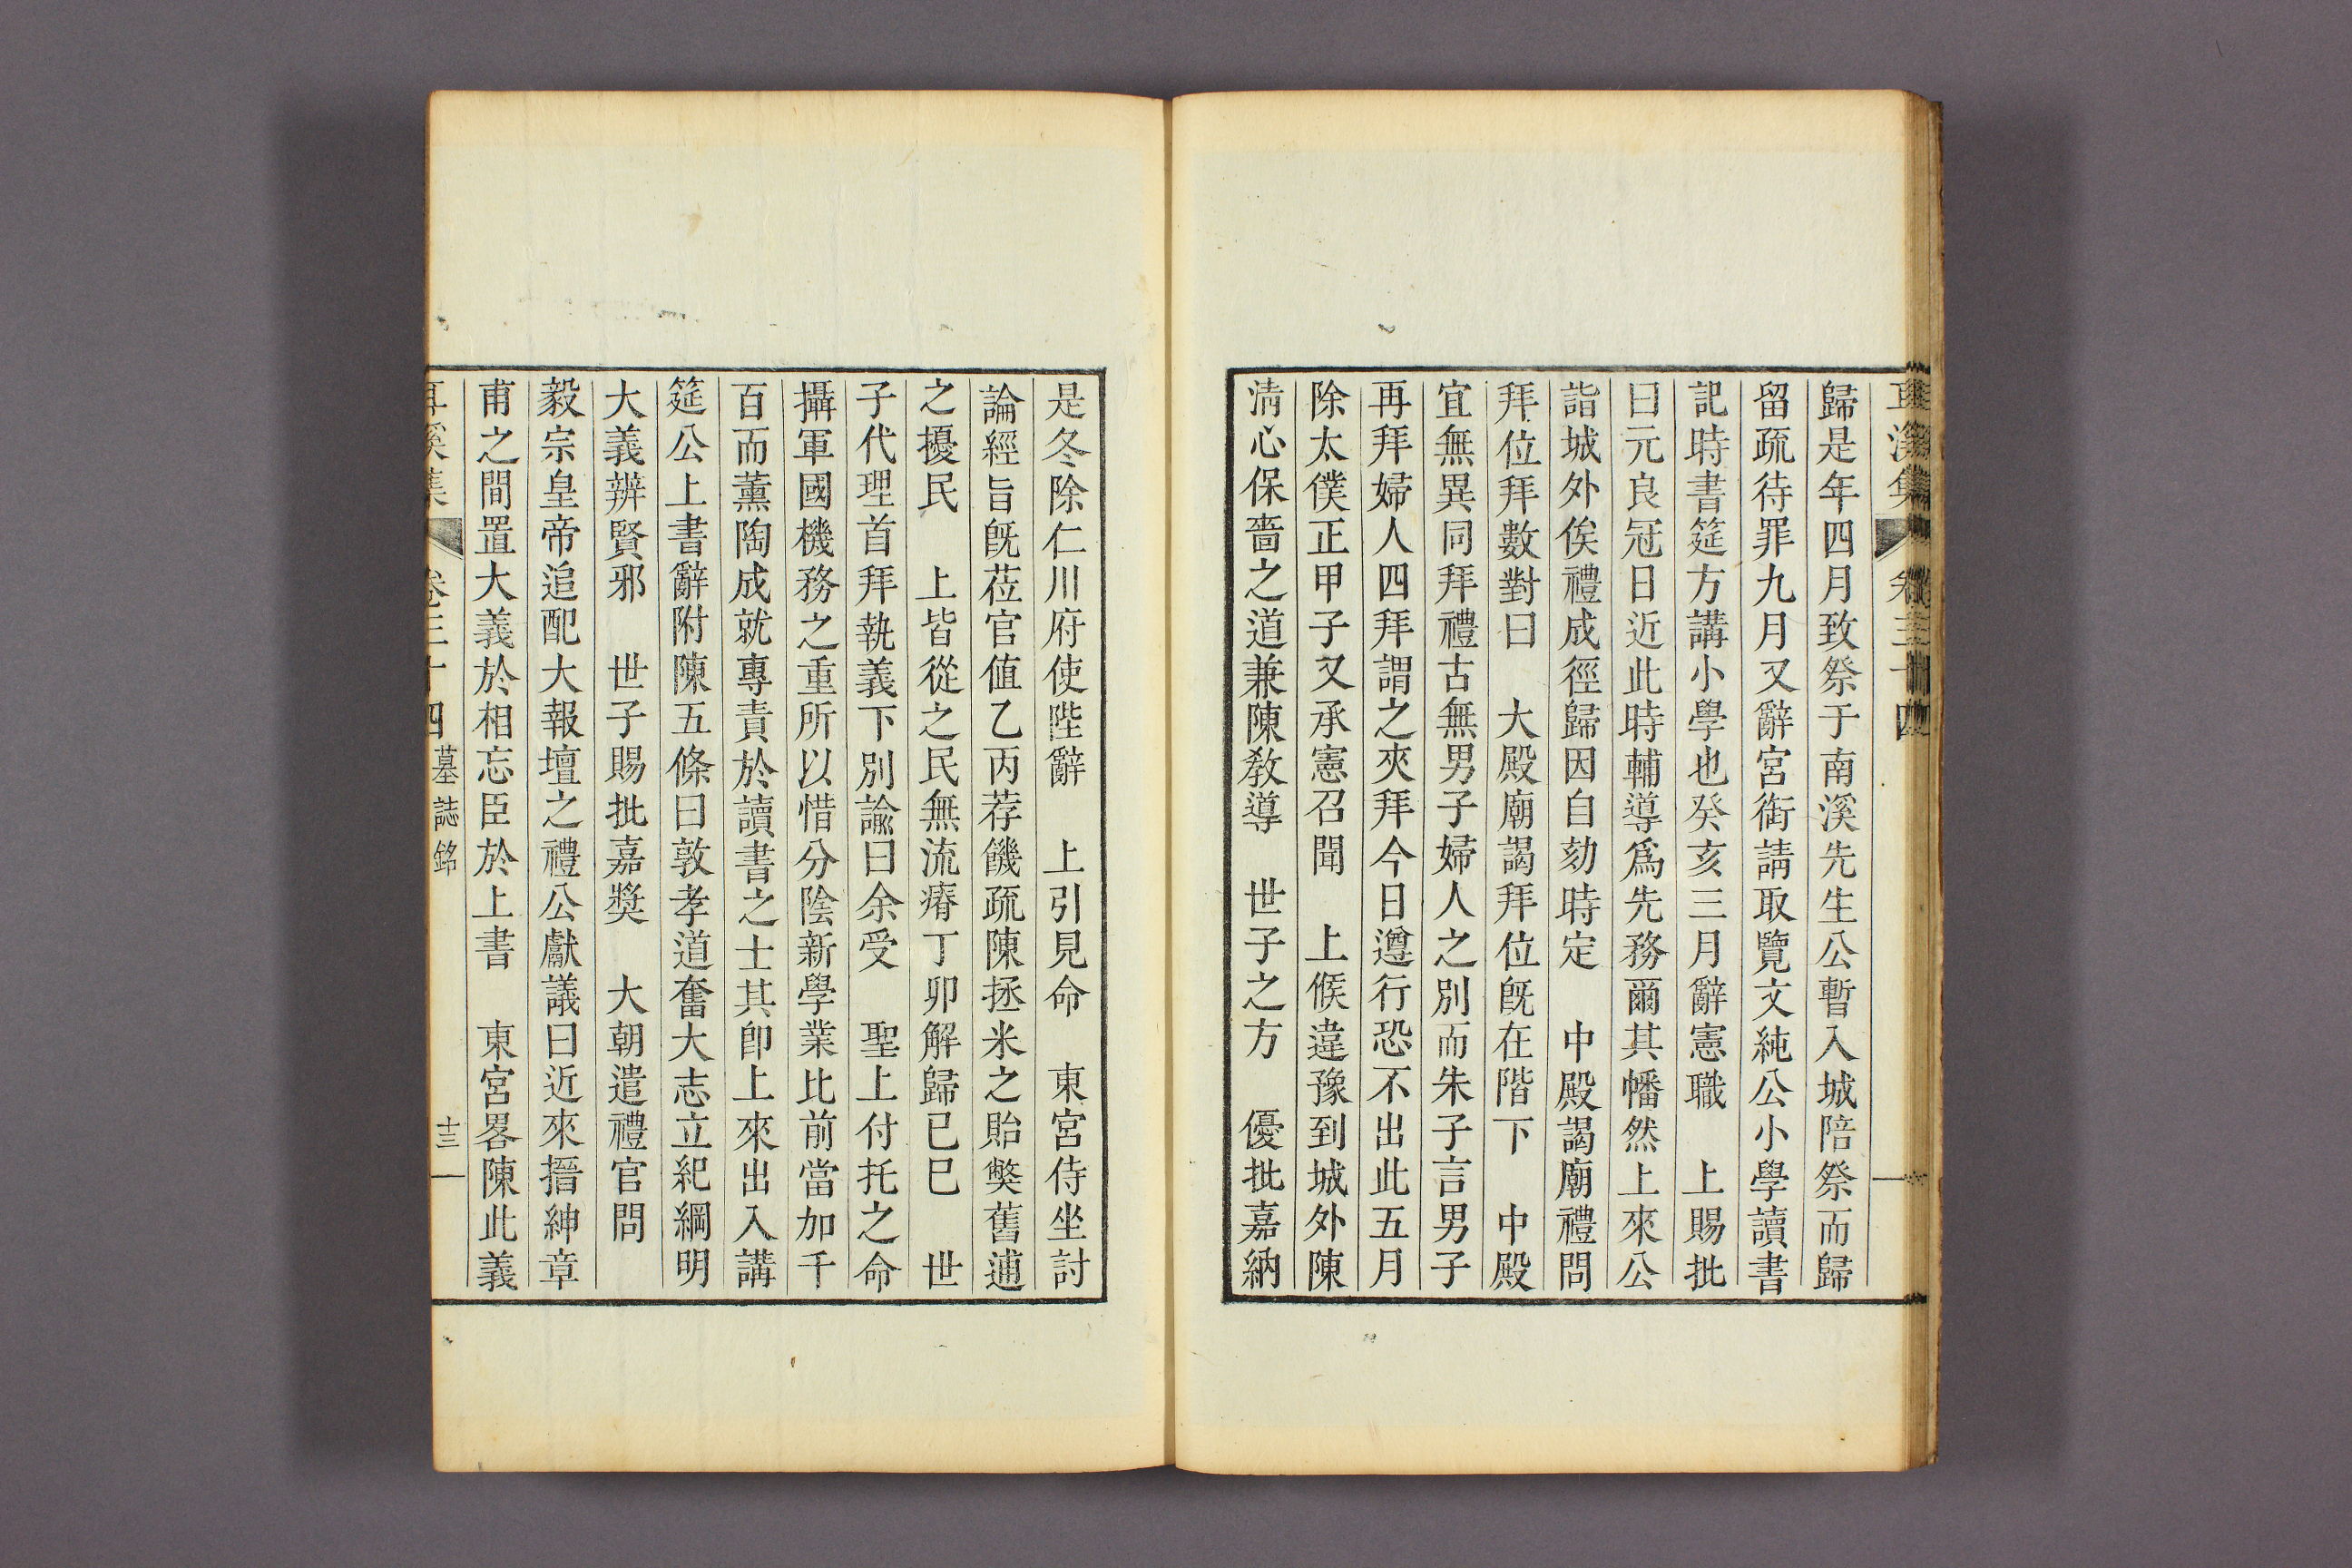 耳溪集 卷三十四
歸是年四月致祭于南溪先生公暫入城陪祭而歸
留疏待罪九月又辭宮銜請取覽文純公小學讀書
記時書筵方講小學也癸亥三月辭憲職 上賜批
曰元良冠日近此時輔導爲先務爾其幡然上來公
詣城外俟禮成徑歸因自劾時定 中殿謁廟禮問
拜位拜數對曰 大殿廟謁拜位旣在階下 中殿
宜無異同拜禮古無男子婦人之別而朱子言男子
再拜婦人四拜謂之夾拜今日遵行恐不出此五月
除太僕正甲子又承憲召聞 上候違豫到城外陳
淸心保嗇之道兼陳敎導 世子之方 優批嘉納
是冬除仁川府使陛辭 上引見命 東宮侍坐討
論經旨旣莅官値乙丙荐饑疏陳拯米之貽獘舊逋
之擾民 上皆從之民無流瘠丁卯解歸已巳 世
子代理首拜執義下別諭曰余受 聖上付托之命
攝軍國機務之重所以惜分陰新學業比前當加千
百而薰陶成就專責於讀書之士其卽上來出入講
筵公上書辭附陳五條曰敦孝道奮大志立紀綱明
大義辨賢邪 世子賜批嘉奬 大朝遣禮官問
毅宗皇帝追配大報壇之禮公獻議曰近來搢紳章
甫之間置大義於相忘臣於上書 東宮畧陳此義
耳溪集 卷三十四 墓誌銘 十三